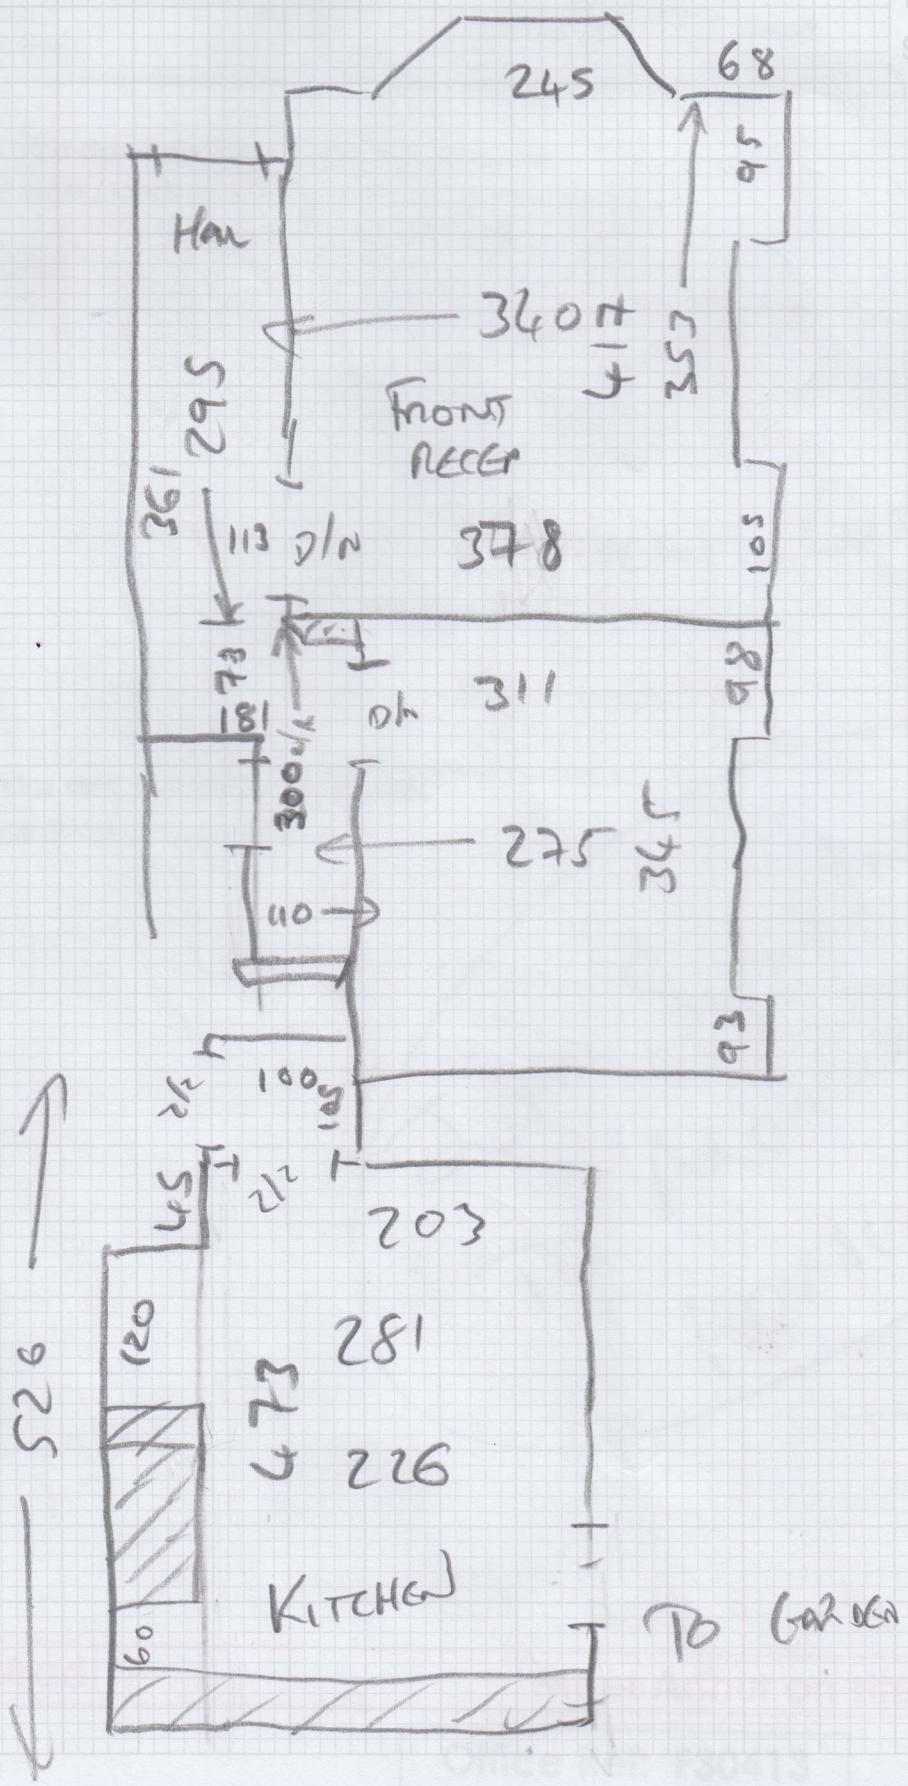 245
68
95
Hall
340
417
353
295
FRONT
RECEP
361
113
D/N
378
105
73
181
311
98
300
275
345
110
93
100
105
2/2
45
2/2
203
120
281
526
473
226
KITCHEN
60
TO GARDEN